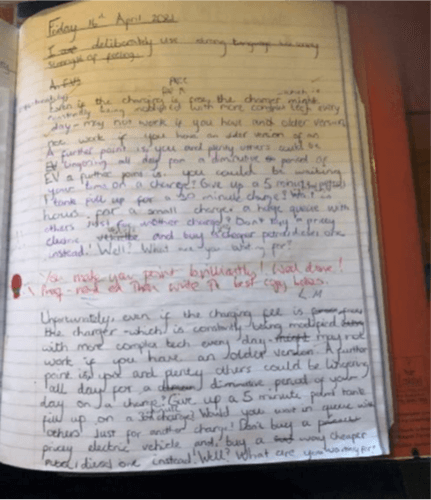 Friday 16th April 2021
I deliberately use strong language
strength of feeling.
A. EVs
Even if the charging is free, the charger might
constantly being modified with more complex tech every
day - may not work if you have and older version
not work if you have an older version of an
A further point is you and plenty others could be
EV lingering all day for a diminutive period of
EV a further point is: you could be waiting
your time on a charge! Give up a 5 minute petrol
tank fill up for a 30 minute charge! Wait in
hours for a small charge a huge queue with
others just for another charge? Don't buy a pricey
electric vehicle and buy a cheaper petrol/diesel one
instead! Well? What are you waiting for?
You make your point brilliantly! Well done!
Proof-read and then write in best copy,
L.M
Unfortunately, even if the charging fee is free
the charger - which is constantly being modified
with more complex tech every day - may not
work if you have an older version. A further
point is you and plenty others could be lingering
all day for a diminutive period of your
day on a charge! Give up a 5 minute petrol tank
fill up on a charge! Would you wait in queue with
others just for another charge! Don't buy a
pricey electric vehicle and, buy a way cheaper
diesel one instead! Well? What are you waiting for?